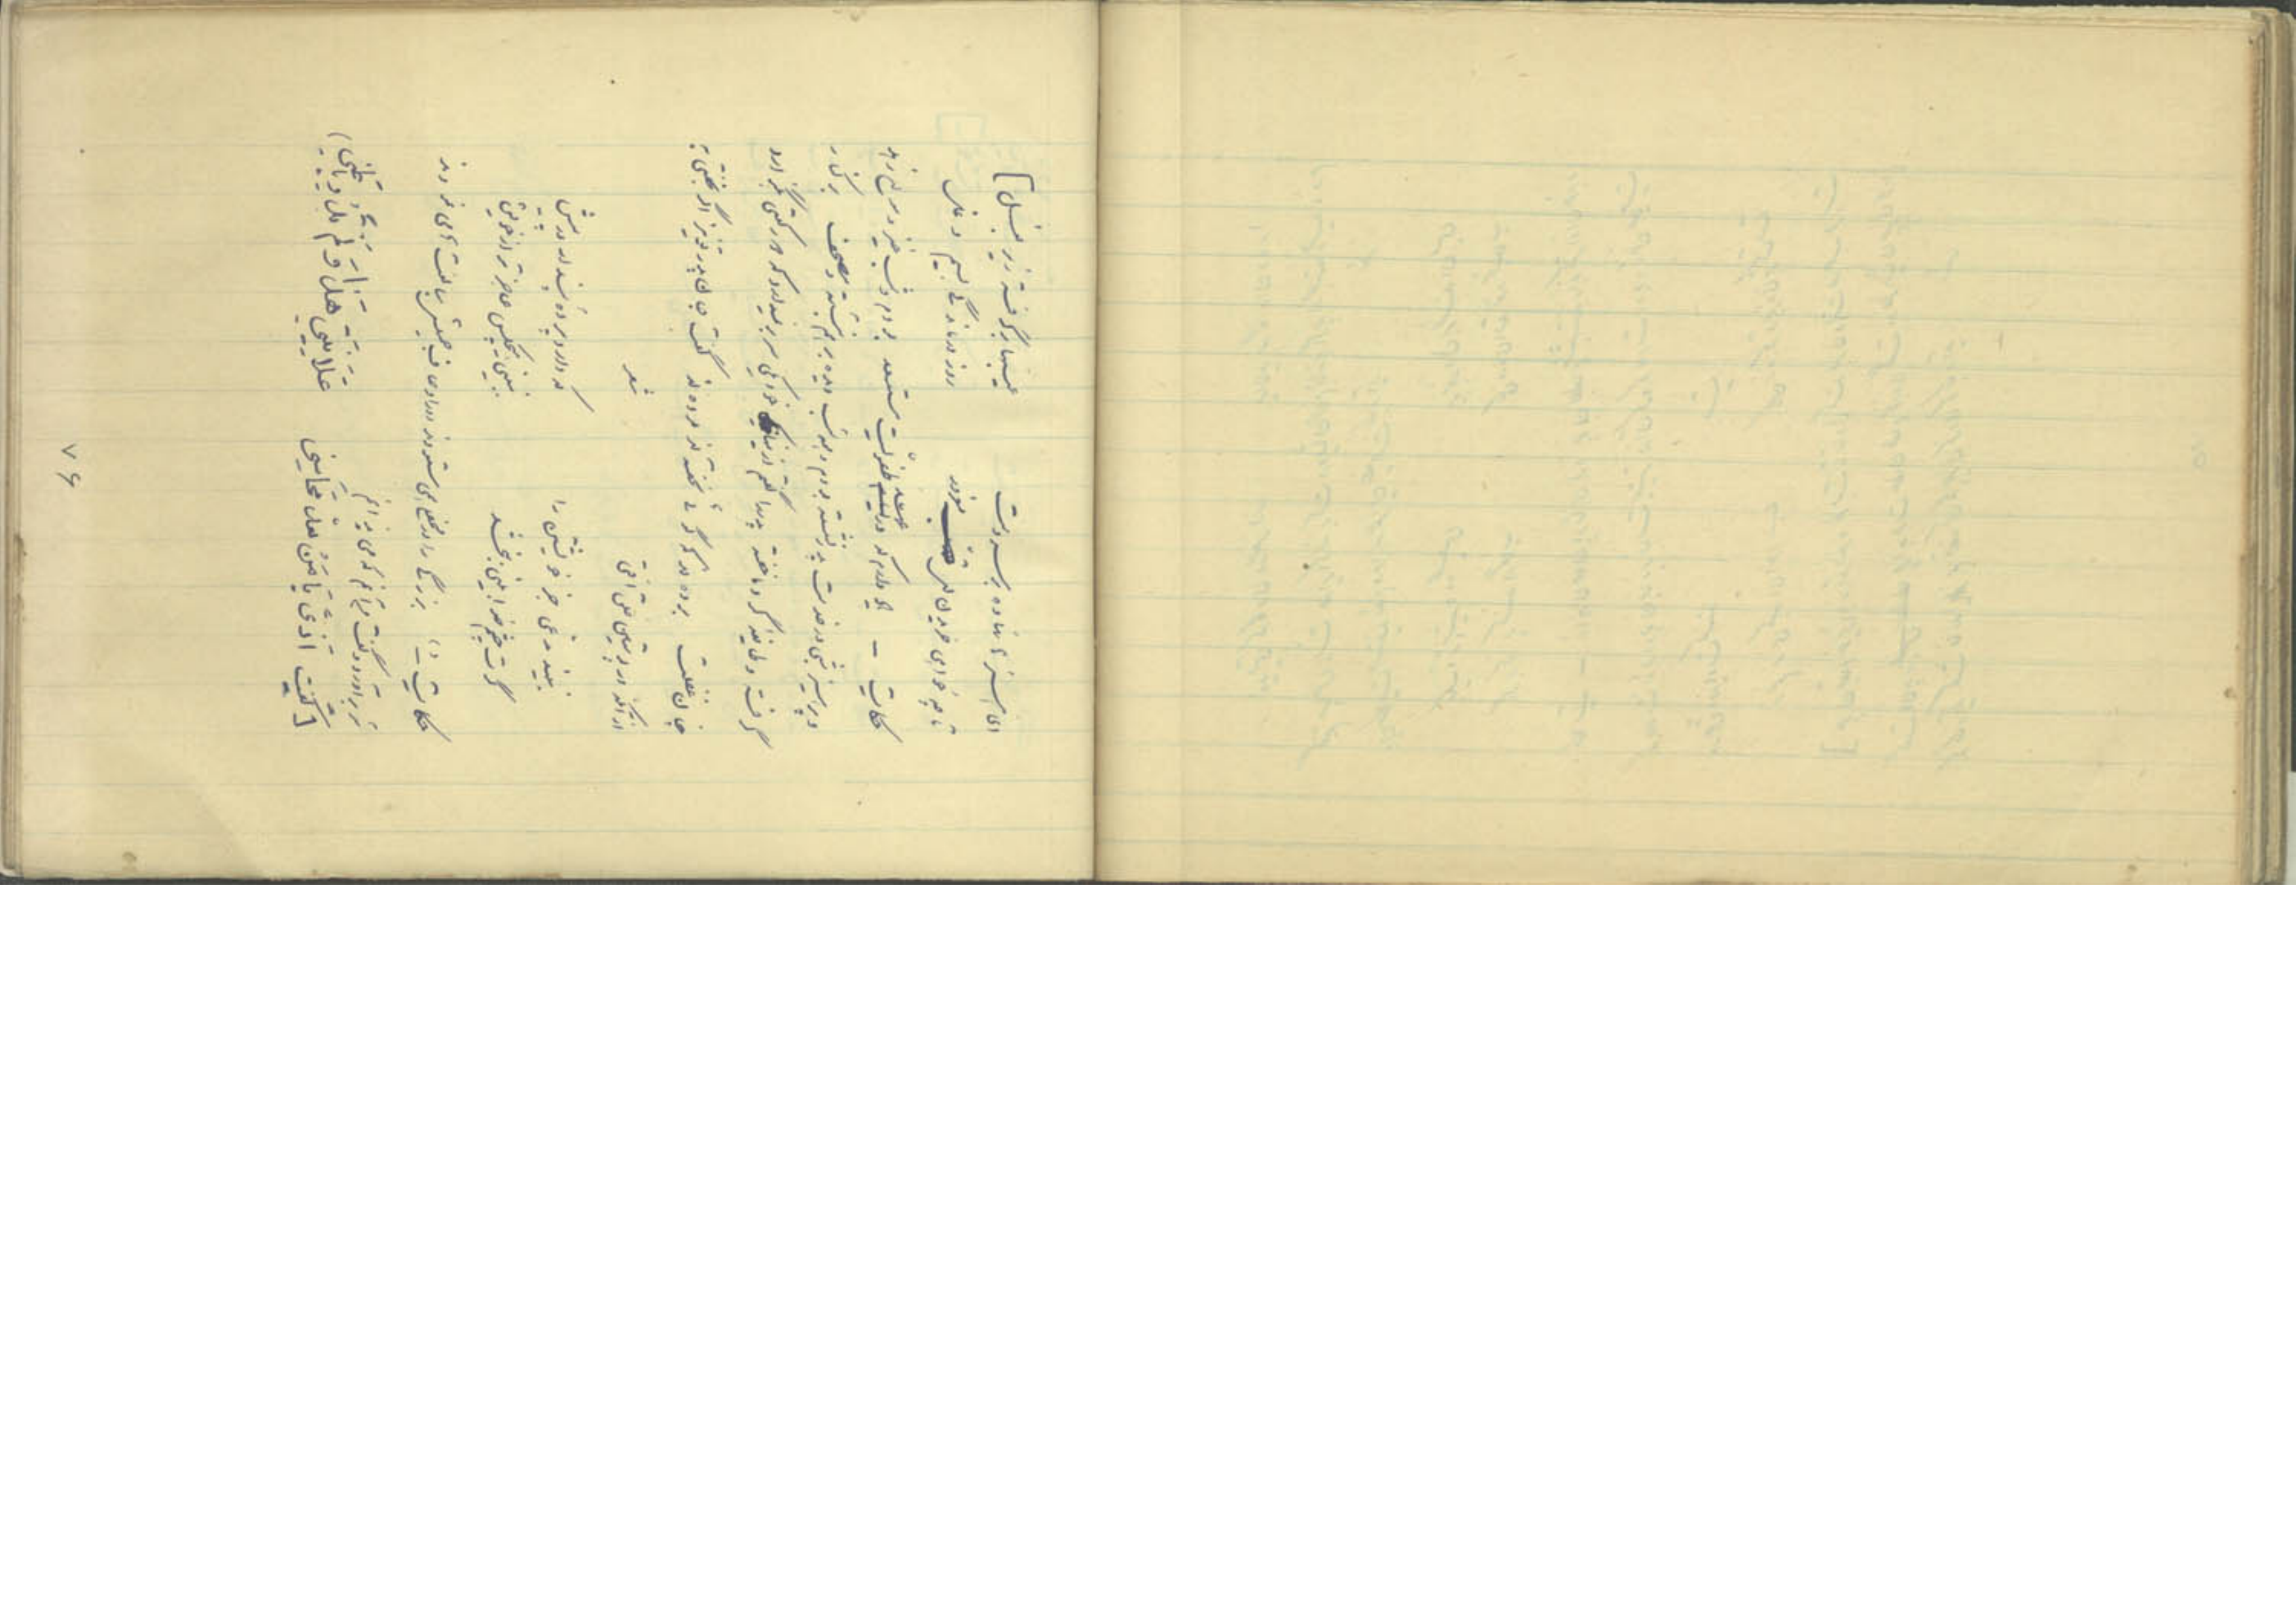 ای هنرها نهاده بر کف دست عیبها برگرفته زیر بغل]
تا چه خواهی خریدن ای مغرور روز درماندگی بسیم دغل
حکایت – یاد دارم که در عهد طفولیت متعبد بودم و شب خیز و مولع زهد
و پرهیز شبی در خدمت پدر نشسته بودم و همه شب دیده بر هم نبسته و مصحف در کنار
گرفته و طایفه گرد ما خفته پدر را گفتم از اینان یکی سر بر نمیدارد که دو رکعتی بگزارد
چنان غفلت برده اند که گوئی نخفته اند مرده اند گفت جان پدر تو نیز اگر بخفتی به
از آنکه در پوستین خلق افتی شعر
نبیند مدعی جز خویشتن را که دارد پرده پندار در پیش
گرت چشم خدا بینی ببخشد نبینی هیچکس عاجزتر از خویش
حکایت – بزرگی را در محفلی همی ستودند و در اوصاف جمیلش مبالغت همی نمودند
سر برآورد و گفت من آنم که من دانم
[کفیت اذی یا من یعد محاسنی علانیتی هذا و لم تدر
۷۶